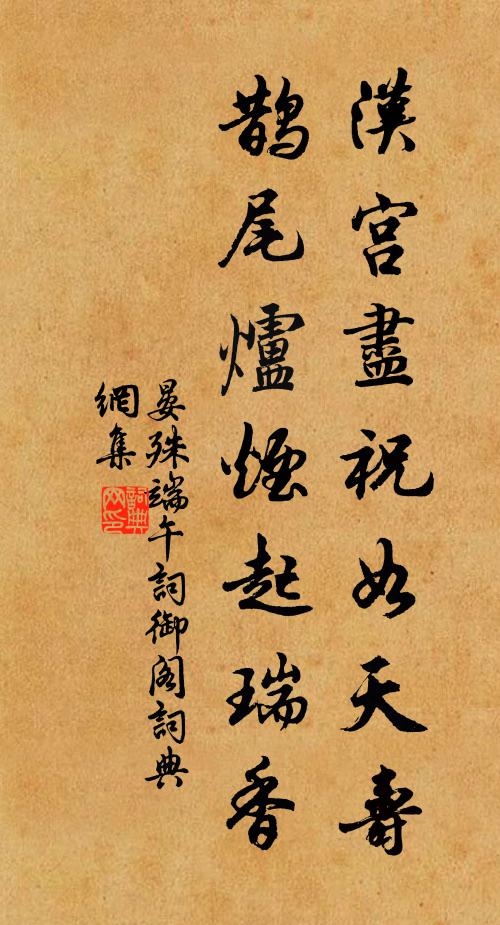 漢宮盡祝如天壽
鵲尾爐煙起瑞香
晏殊端午詞御閣詞典
網集
詞典
网印